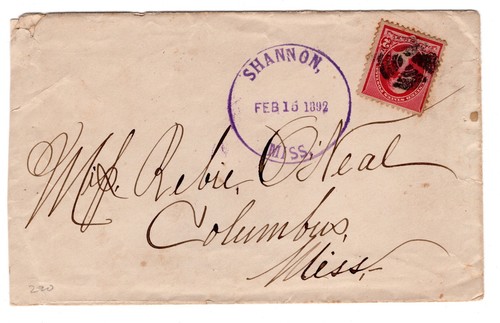 SHANNON,
FEB 16 1892
MISS.
Miss. Rebie O'Neal
Columbus,
Miss,
290